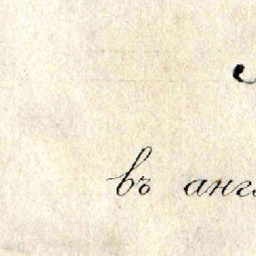 въ анг